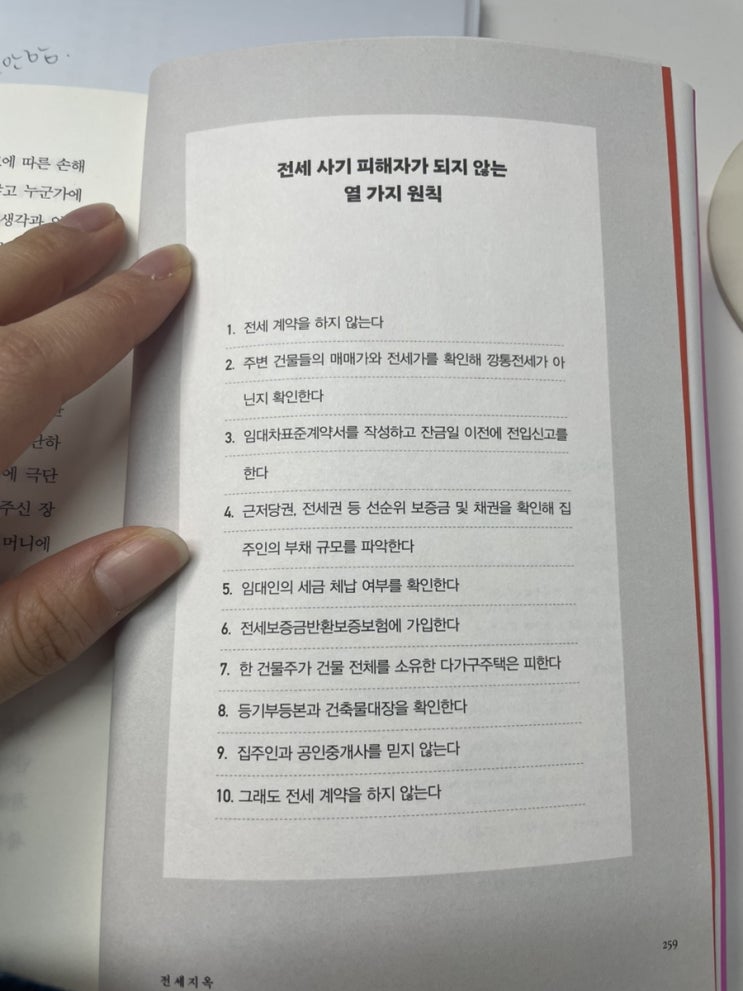 에 따른 손해
고 누군가에
생각과
전세 사기 피해자가 되지 않는
열 가지 원칙
1. 전세 계약을 하지 않는다
2. 주변 건물들의 매매가와 전세가를 확인해 깡통전세가 아
닌지 확인한다
3. 임대차표준계약서를 작성하고 잔금일 이전에 전입신고를
한다
4. 근저당권, 전세권 등 선순위 보증금 및 채권을 확인해 집
주인의 부채 규모를 파악한다
5. 임대인의 세금 체납 여부를 확인한다
6. 전세보증금반환보증보험에 가입한다
7. 한 건물주가 건물 전체를 소유한 다가구주택은 피한다
8. 등기부등본과 건축물대장을 확인한다
9. 집주인과 공인중개사를 믿지 않는다
10. 그래도 전세 계약을 하지 않는다
에 극단
주신 장
머니에
259
전세지옥